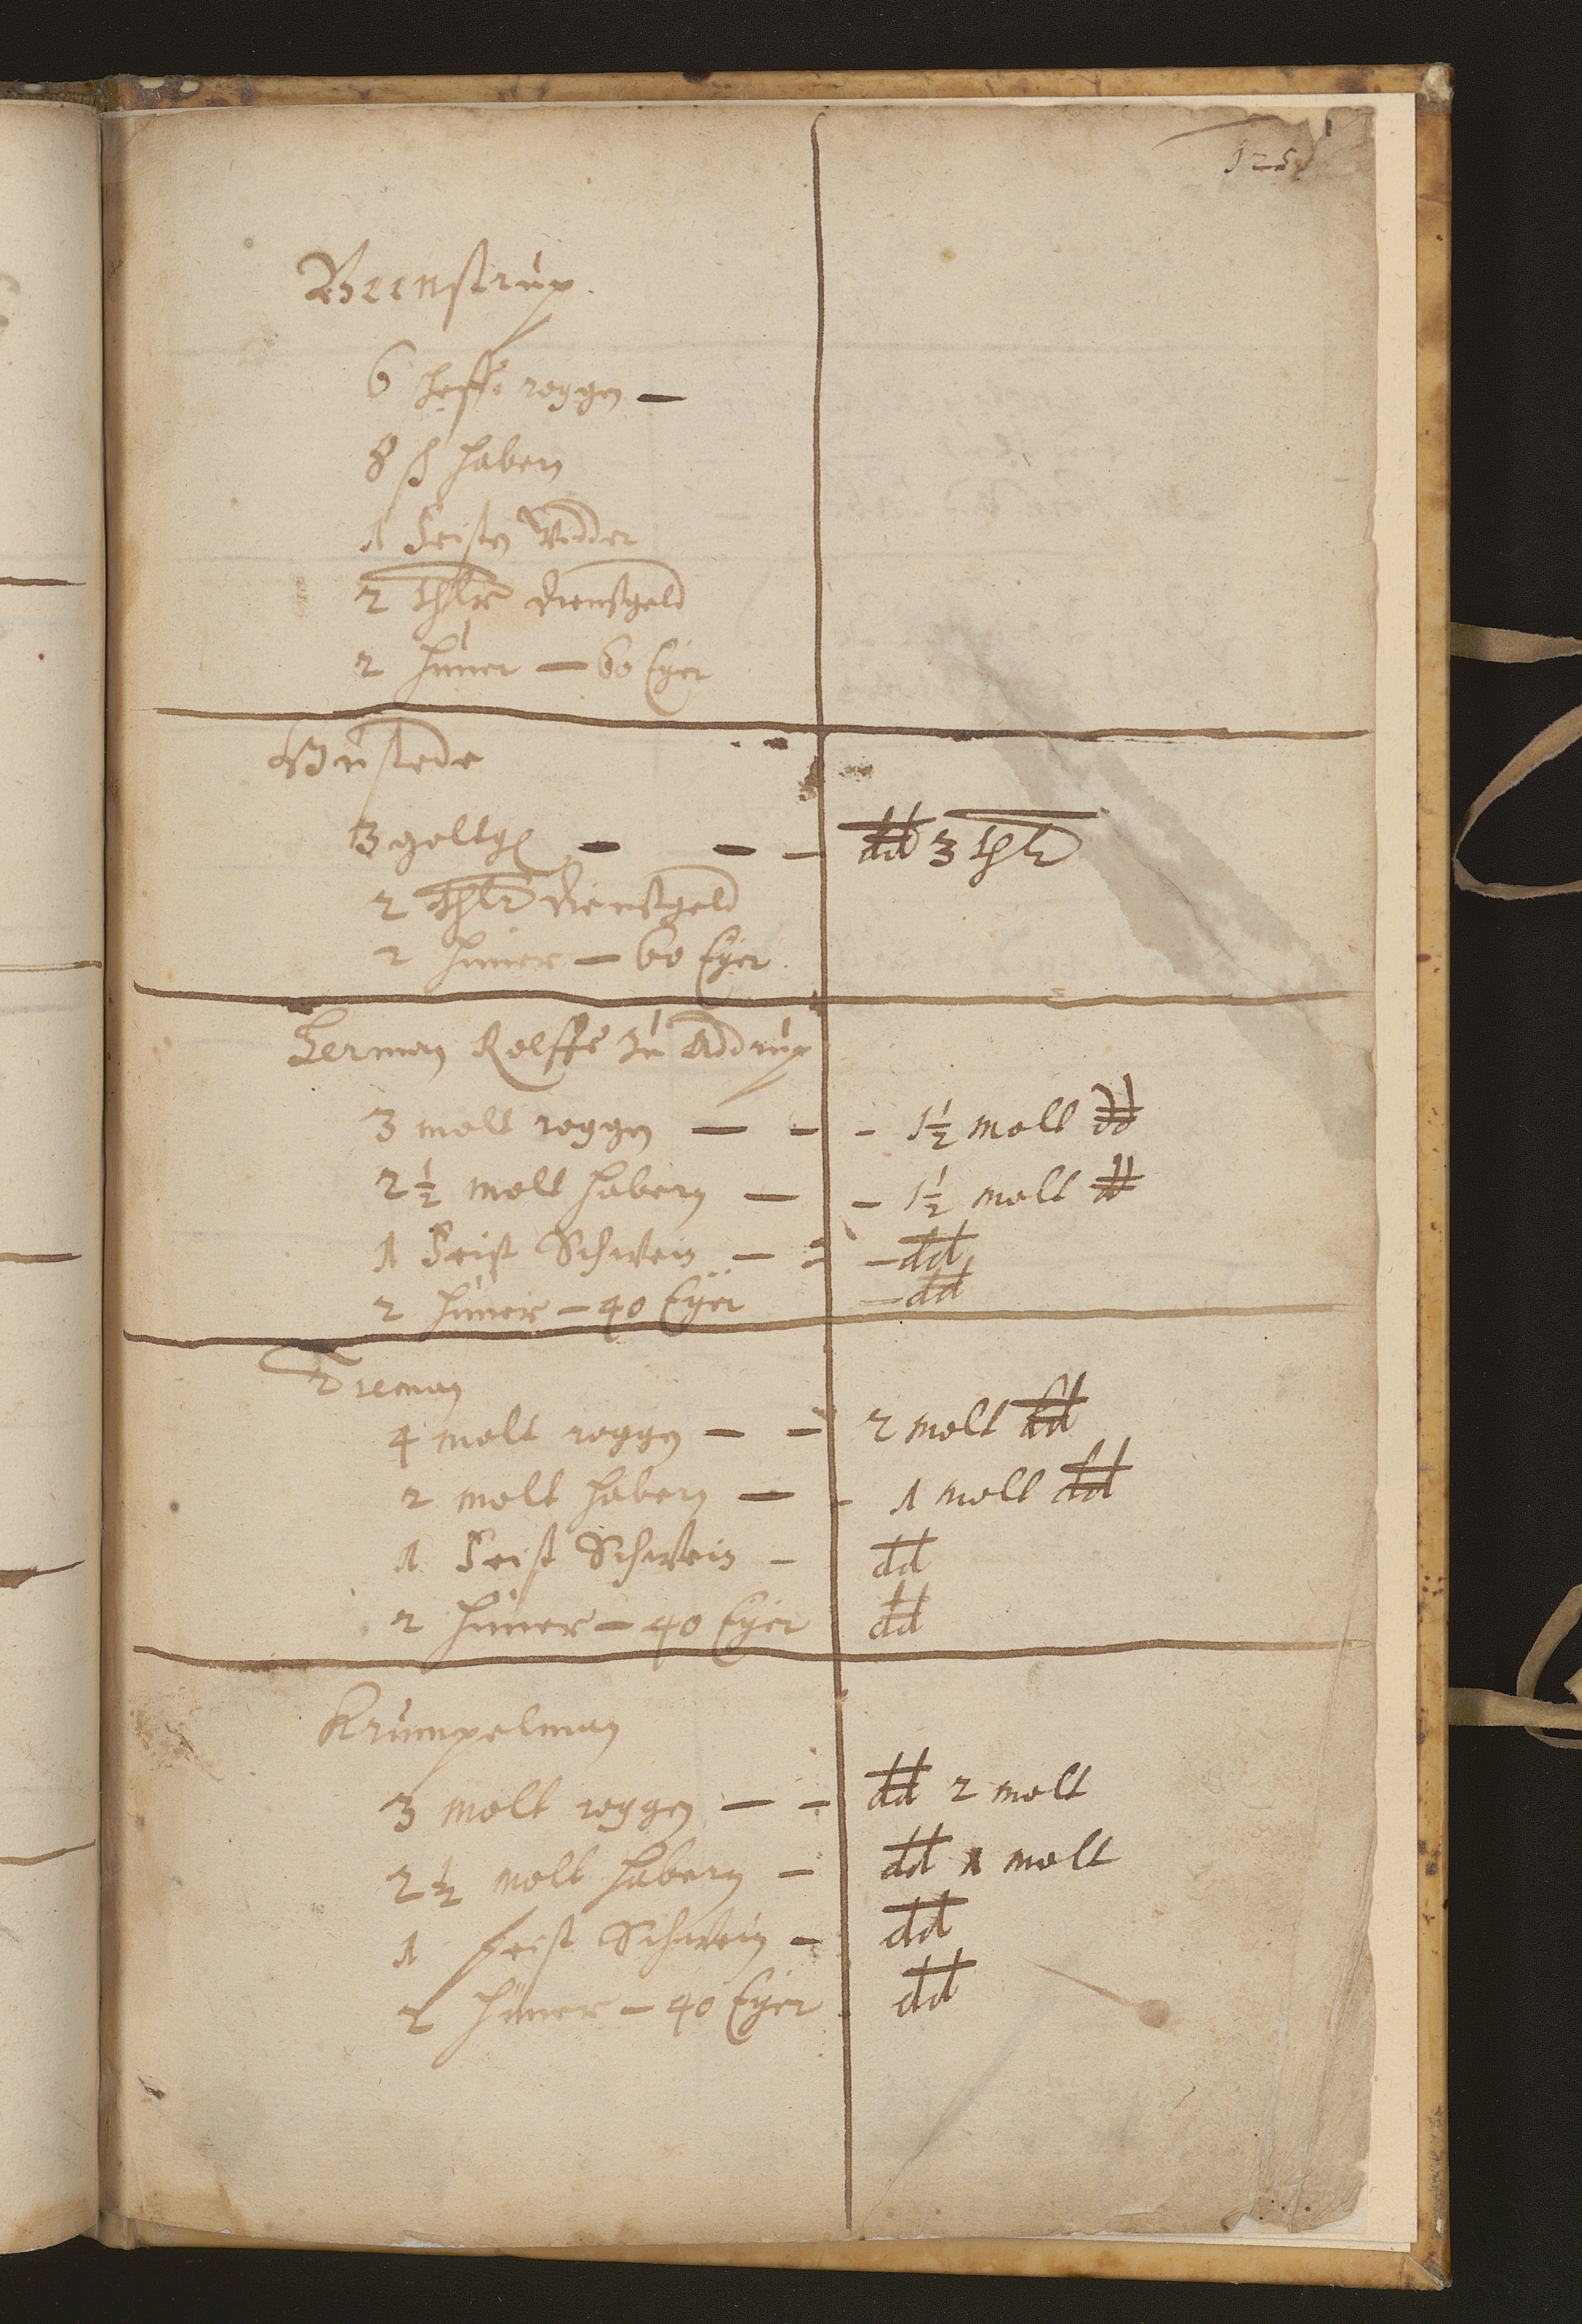 125
Beenstrup.
6 scheffe roggen —
8 ß habern
1 Feisten Wedder
2 thlr dienstgeld
2 Hüner — 60 Eyer
Büstede
3 goltgl — — — dd 3 thlr
2 thlr dienstgeld
2 Hüner — 60 Eyer
Herman Rolffs zu Addrup
3 molt roggen — — - 1½ molt dd
2½ molt habern — - 1½ molt dd
1 Feist Schwein — - — dd
2 Hüner — 40 Eyer — dd
Dieman
4 molt roggen — — 2 molt dd
2 molt habern — - 1 molt dd
1 Feist Schwein — dd
2 Hüner — 40 Eyer dd
Krumpelman
3 molt roggen — — dd 2 molt
2½ molt habern — dd 1 molt
1 feist Schwein — dd
2 Hüner — 40 Eyer dd